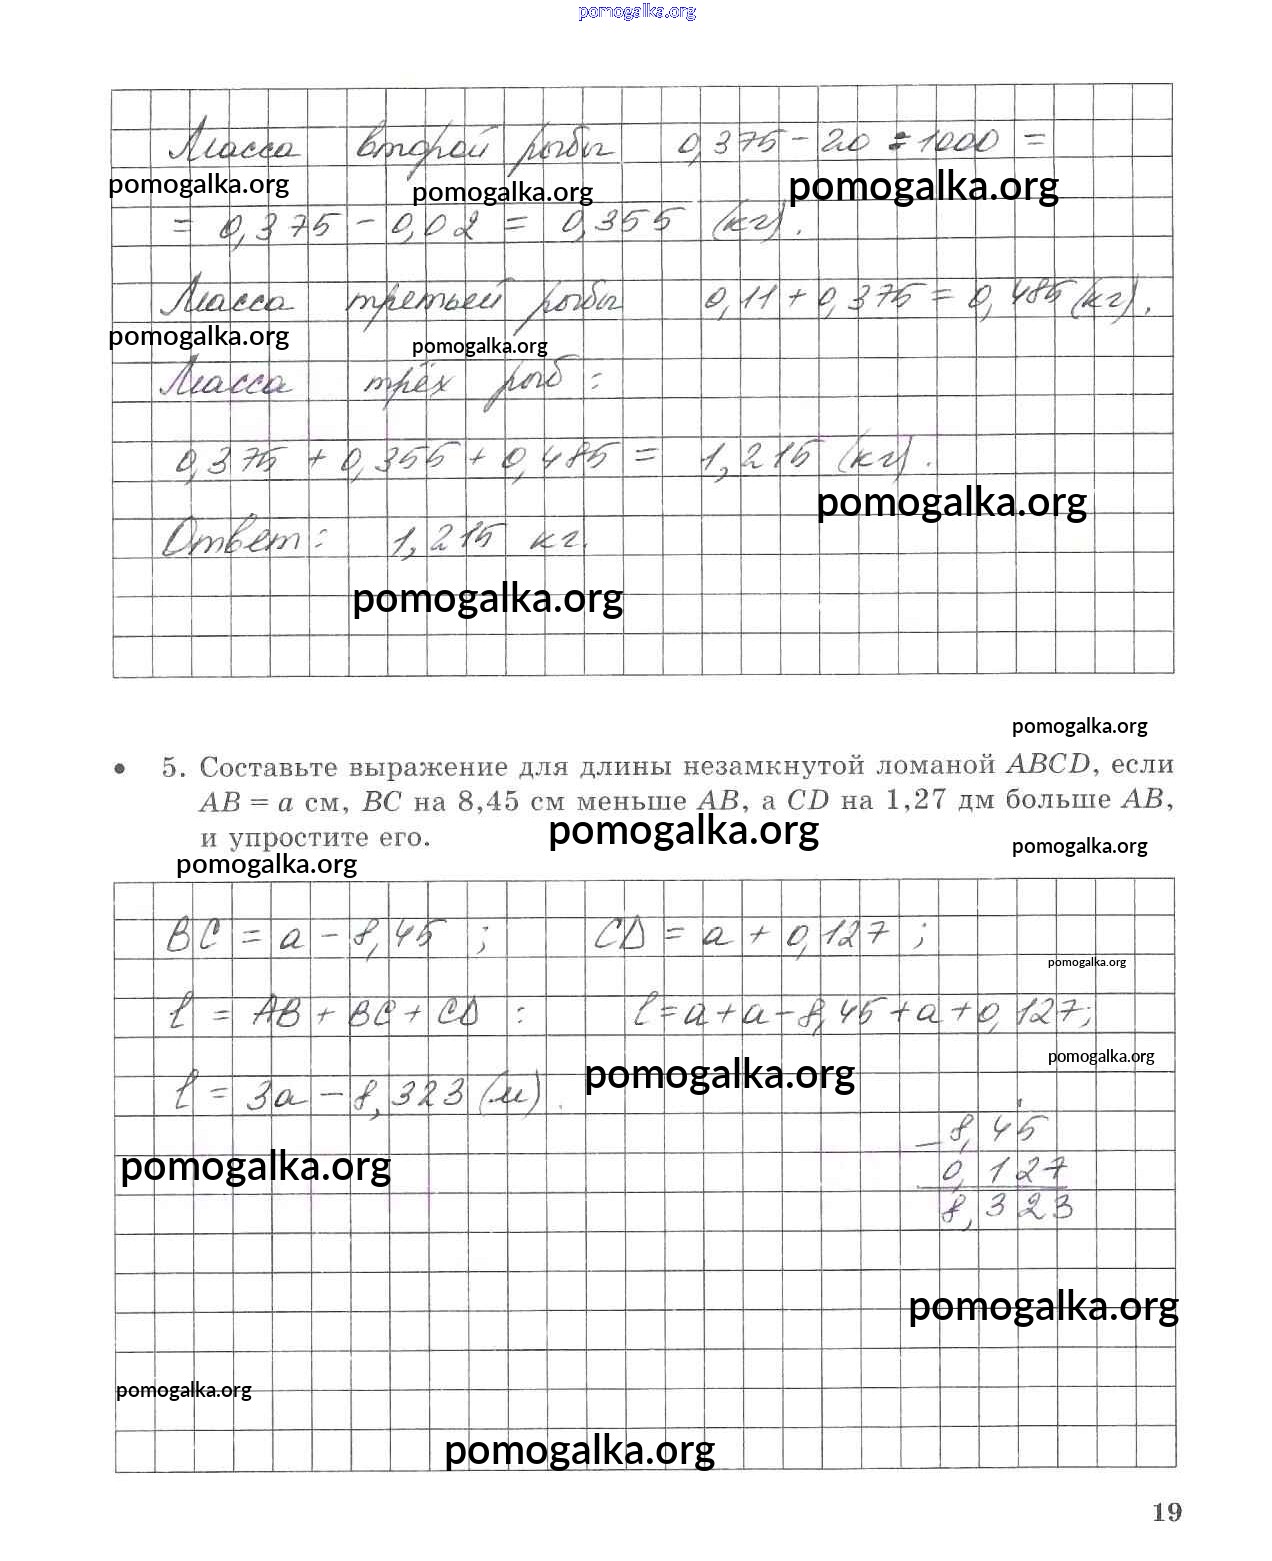 pomogalka.org
Масса второй рыбы 0,375 - 20 : 1000 =
pomogalka.org pomogalka.org pomogalka.org
= 0,375 - 0,02 = 0,355 (кг).
Масса третьей рыбы 0,11 + 0,375 = 0,485 (кг).
pomogalka.org pomogalka.org
Масса трёх рыб :
0,375 + 0,355 + 0,485 = 1,215 (кг).
pomogalka.org
Ответ: 1,215 кг.
pomogalka.org
pomogalka.org
• 5. Составьте выражение для длины незамкнутой ломаной ABCD, если
AB = a см, BC на 8,45 см меньше AB, а CD на 1,27 дм больше AB,
и упростите его.
pomogalka.org pomogalka.org
pomogalka.org
BC = a - 8,45 ; CD = a + 0,127 ;
pomogalka.org
l = AB + BC + CD : l = a + a - 8,45 + a + 0,127;
pomogalka.org pomogalka.org
l = 3a - 8,323 (м).
8,45
pomogalka.org
- 0,127
8,323
pomogalka.org
pomogalka.org
pomogalka.org
19